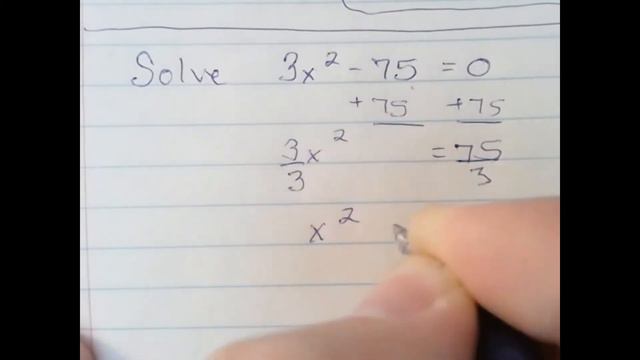 Solve 3x² - 75 = 0
+75 +75
3/3 x² = 75/3
x²